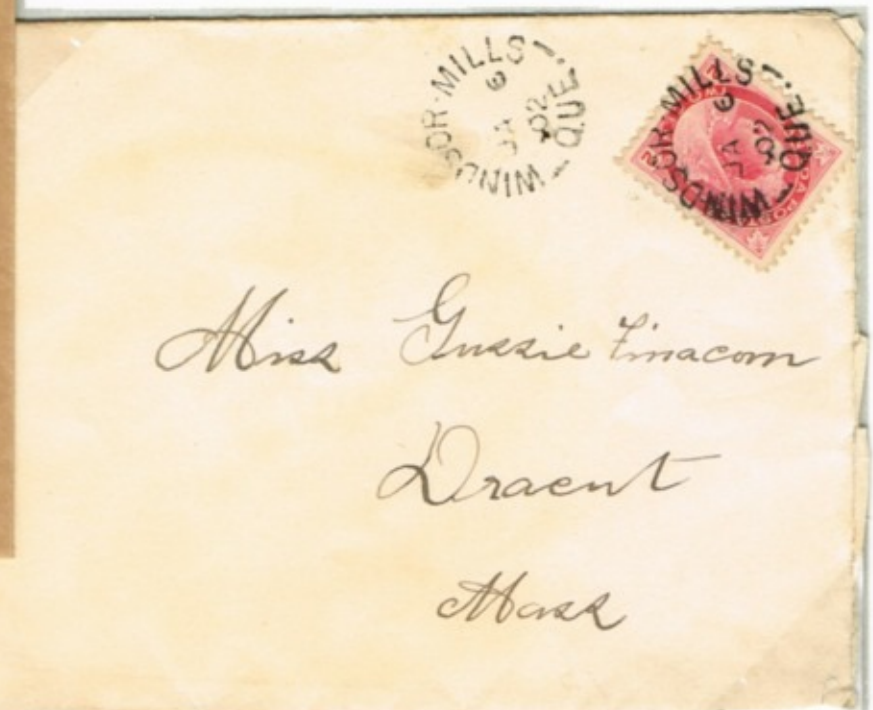 WINDSOR-MILLS QUE.
JA 6 02
WINDSOR-MILLS QUE.
JA 6 02
2
2
Miss Gussie Finacom
Dracut
Mass